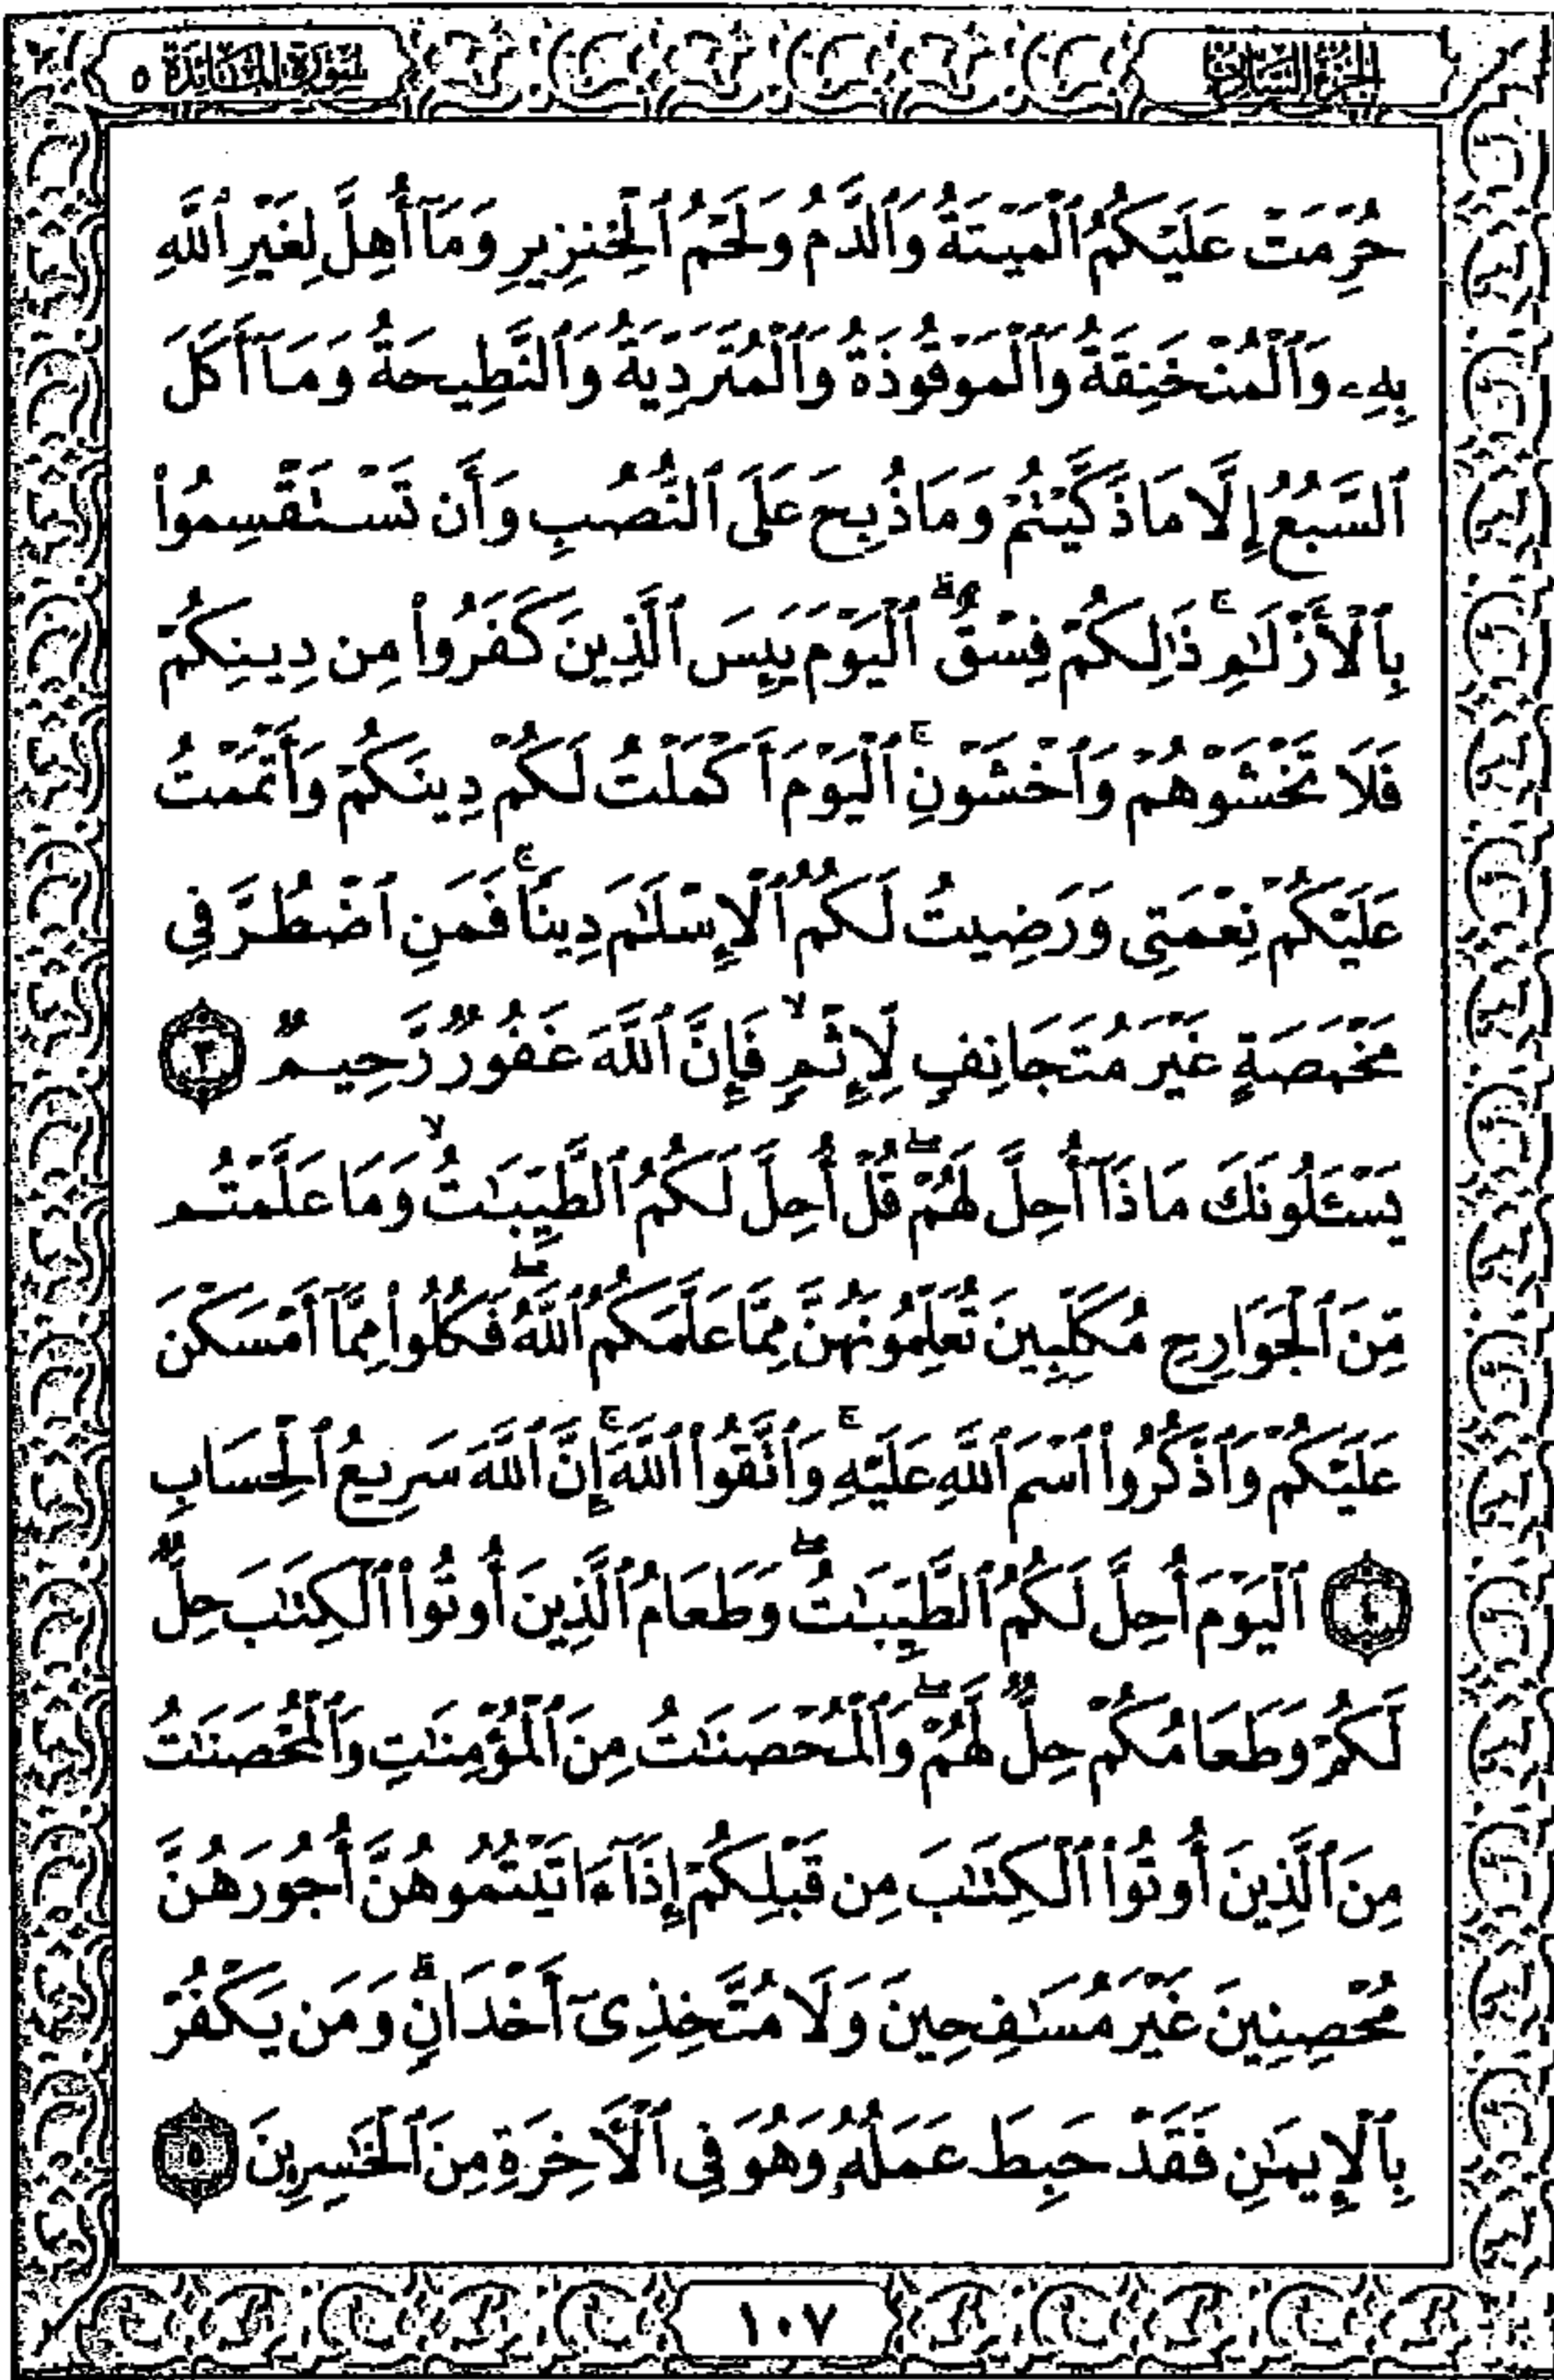 الجزء السادس
سورة المائدة ٥
حُرِّمَتْ عَلَيْكُمُ ٱلْمَيْتَةُ وَٱلدَّمُ وَلَحْمُ ٱلْخِنزِيرِ وَمَآ أُهِلَّ لِغَيْرِ ٱللَّهِ
بِهِۦ وَٱلْمُنْخَنِقَةُ وَٱلْمَوْقُوذَةُ وَٱلْمُتَرَدِّيَةُ وَٱلنَّطِيحَةُ وَمَآ أَكَلَ
ٱلسَّبُعُ إِلَّا مَا ذَكَّيْتُمْ وَمَا ذُبِحَ عَلَى ٱلنُّصُبِ وَأَن تَسْتَقْسِمُوا۟
بِٱلْأَزْلَٰمِ ۚ ذَٰلِكُمْ فِسْقٌ ۗ ٱلْيَوْمَ يَئِسَ ٱلَّذِينَ كَفَرُوا۟ مِن دِينِكُمْ
فَلَا تَخْشَوْهُمْ وَٱخْشَوْنِ ۚ ٱلْيَوْمَ أَكْمَلْتُ لَكُمْ دِينَكُمْ وَأَتْمَمْتُ
عَلَيْكُمْ نِعْمَتِى وَرَضِيتُ لَكُمُ ٱلْإِسْلَٰمَ دِينًا ۚ فَمَنِ ٱضْطُرَّ فِى
مَخْمَصَةٍ غَيْرَ مُتَجَانِفٍ لِّإِثْمٍ ۙ فَإِنَّ ٱللَّهَ غَفُورٌ رَّحِيمٌ ٣
يَسْـَٔلُونَكَ مَاذَآ أُحِلَّ لَهُمْ ۖ قُلْ أُحِلَّ لَكُمُ ٱلطَّيِّبَٰتُ ۙ وَمَا عَلَّمْتُم
مِّنَ ٱلْجَوَارِحِ مُكَلِّبِينَ تُعَلِّمُونَهُنَّ مِمَّا عَلَّمَكُمُ ٱللَّهُ ۖ فَكُلُوا۟ مِمَّآ أَمْسَكْنَ
عَلَيْكُمْ وَٱذْكُرُوا۟ ٱسْمَ ٱللَّهِ عَلَيْهِ ۚ وَٱتَّقُوا۟ ٱللَّهَ ۚ إِنَّ ٱللَّهَ سَرِيعُ ٱلْحِسَابِ
٤ ٱلْيَوْمَ أُحِلَّ لَكُمُ ٱلطَّيِّبَٰتُ ۖ وَطَعَامُ ٱلَّذِينَ أُوتُوا۟ ٱلْكِتَٰبَ حِلٌّ
لَّكُمْ وَطَعَامُكُمْ حِلٌّ لَّهُمْ ۖ وَٱلْمُحْصَنَٰتُ مِنَ ٱلْمُؤْمِنَٰتِ وَٱلْمُحْصَنَٰتُ
مِنَ ٱلَّذِينَ أُوتُوا۟ ٱلْكِتَٰبَ مِن قَبْلِكُمْ إِذَآ ءَاتَيْتُمُوهُنَّ أُجُورَهُنَّ
مُحْصِنِينَ غَيْرَ مُسَٰفِحِينَ وَلَا مُتَّخِذِىٓ أَخْدَانٍ ۗ وَمَن يَكْفُرْ
بِٱلْإِيمَٰنِ فَقَدْ حَبِطَ عَمَلُهُۥ وَهُوَ فِى ٱلْـَٔاخِرَةِ مِنَ ٱلْخَٰسِرِينَ ٥
١٠٧